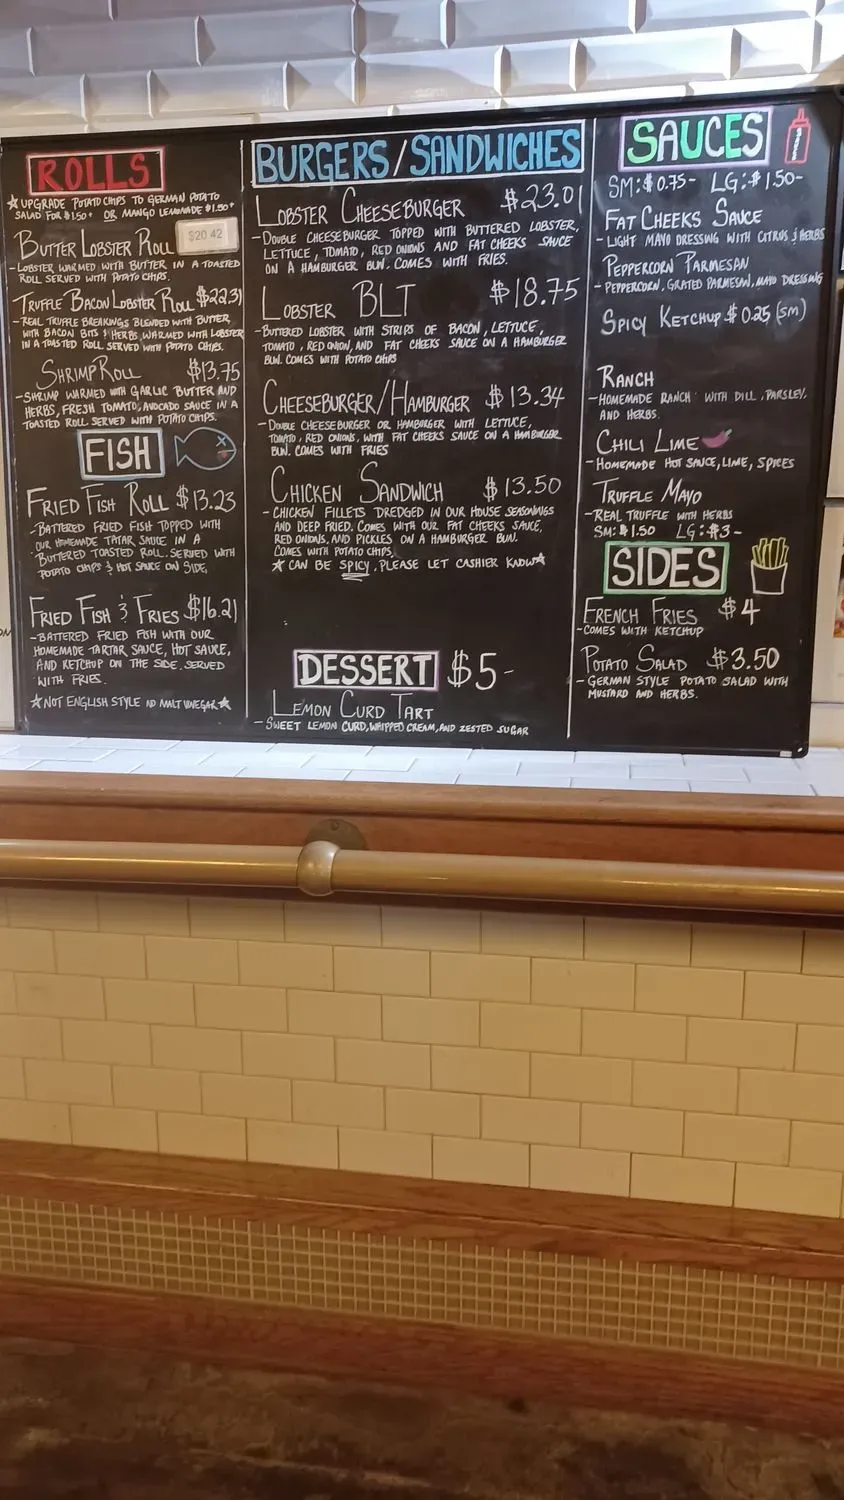 ROLLS
☆ UPGRADE POTATO CHIPS TO GERMAN POTATO
SALAD FOR $1.50+ OR MANGO LEMONADE $1.50+
BUTTER LOBSTER ROLL $20.42
- LOBSTER WARMED WITH BUTTER IN A TOASTED
ROLL SERVED WITH POTATO CHIPS.
TRUFFLE BACON LOBSTER ROLL $22.31
- REAL TRUFFLE BREAKINGS BLENDED WITH BUTTER,
WITH BACON BITS & HERBS, WARMED WITH LOBSTER
IN A TOASTED ROLL SERVED WITH POTATO CHIPS.
SHRIMP ROLL $13.75
- SHRIMP WARMED WITH GARLIC BUTTER AND
HERBS, FRESH TOMATO, AVOCADO SAUCE IN A
TOASTED ROLL SERVED WITH POTATO CHIPS.
FISH
FRIED FISH ROLL $13.23
- BATTERED FRIED FISH TOPPED WITH
OUR HOMEMADE TATAR SAUCE IN A
BUTTERED TOASTED ROLL. SERVED WITH
POTATO CHIPS & HOT SAUCE ON SIDE.
FRIED FISH & FRIES $16.21
- BATTERED FRIED FISH WITH OUR
HOMEMADE TARTAR SAUCE, HOT SAUCE,
AND KETCHUP ON THE SIDE. SERVED
WITH FRIES.
☆ NOT ENGLISH STYLE NO MALT VINEGAR ☆
BURGERS/SANDWICHES
LOBSTER CHEESEBURGER $23.01
- DOUBLE CHEESEBURGER TOPPED WITH BUTTERED LOBSTER,
LETTUCE, TOMATO, RED ONIONS AND FAT CHEEKS SAUCE
ON A HAMBURGER BUN. COMES WITH FRIES.
LOBSTER BLT $18.75
- BUTTERED LOBSTER WITH STRIPS OF BACON, LETTUCE,
TOMATO, RED ONION, AND FAT CHEEKS SAUCE ON A HAMBURGER
BUN. COMES WITH POTATO CHIPS
CHEESEBURGER/HAMBURGER $13.34
- DOUBLE CHEESEBURGER OR HAMBURGER WITH LETTUCE,
TOMATO, RED ONIONS, WITH FAT CHEEKS SAUCE ON A HAMBURGER
BUN. COMES WITH FRIES
CHICKEN SANDWICH $13.50
- CHICKEN FILLETS DREDGED IN OUR HOUSE SEASONINGS
AND DEEP FRIED. COMES WITH OUR FAT CHEEKS SAUCE,
RED ONIONS, AND PICKLES ON A HAMBURGER BUN.
COMES WITH POTATO CHIPS.
☆ CAN BE SPICY, PLEASE LET CASHIER KNOW ☆
DESSERT $5-
LEMON CURD TART
- SWEET LEMON CURD, WHIPPED CREAM, AND ZESTED SUGAR
SAUCES
SM: $0.75- LG: $1.50-
FAT CHEEKS SAUCE
- LIGHT MAYO DRESSING WITH CITRUS & HERBS
PEPPERCORN PARMESAN
- PEPPERCORN, GRATED PARMESAN, MAYO DRESSING
SPICY KETCHUP $0.25 (SM)
RANCH
- HOMEMADE RANCH WITH DILL, PARSLEY,
AND HERBS.
CHILI LIME
- HOMEMADE HOT SAUCE, LIME, SPICES
TRUFFLE MAYO
- REAL TRUFFLE WITH HERBS
SM: $1.50 LG: $3-
SIDES
FRENCH FRIES $4
- COMES WITH KETCHUP
POTATO SALAD $3.50
- GERMAN STYLE POTATO SALAD WITH
MUSTARD AND HERBS.